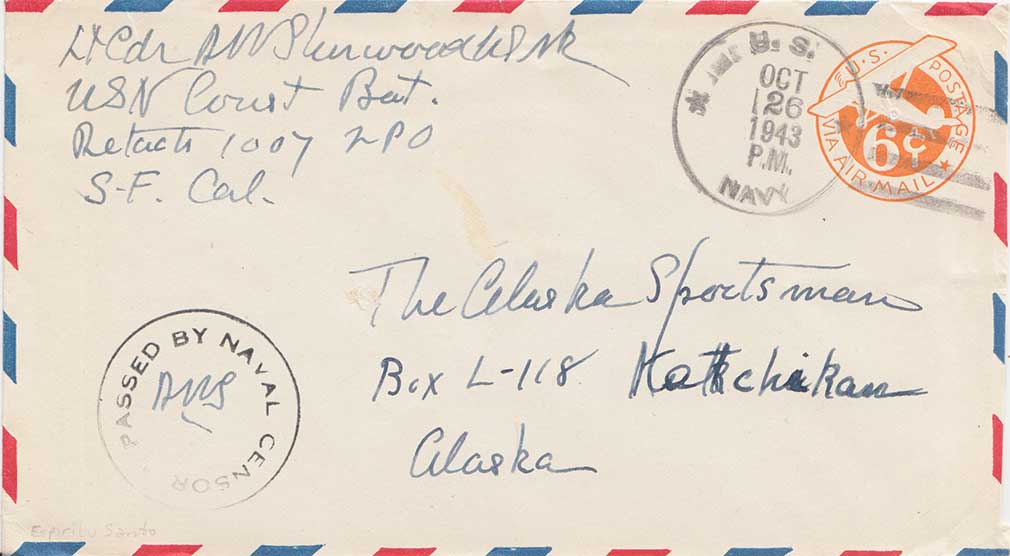 Lt Cdr AW Sherwood
USN Const Bat.
1007 
S-F. Cal.
U.S.
OCT
26
1943
P.M.
NAVY
U.S. POSTAGE
6¢
VIA AIR MAIL
The Alaska Sportsman
Box L-118 Katchikan
Alaska
PASSED BY NAVAL CENSOR
AWS
Espiritu Santo